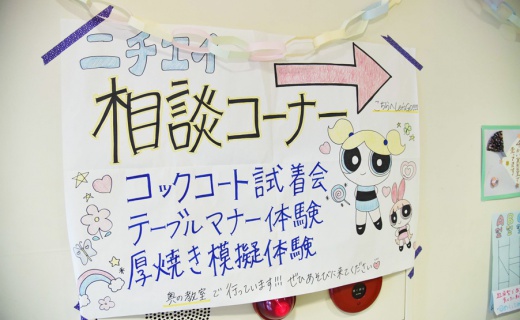 ニチエイ
相談コーナー
こちらへLet'sGo!!!
コックコート試着会
テーブルマナー体験
厚焼き模擬体験
奥の教室で行っています!!! ぜひあそびに来てください